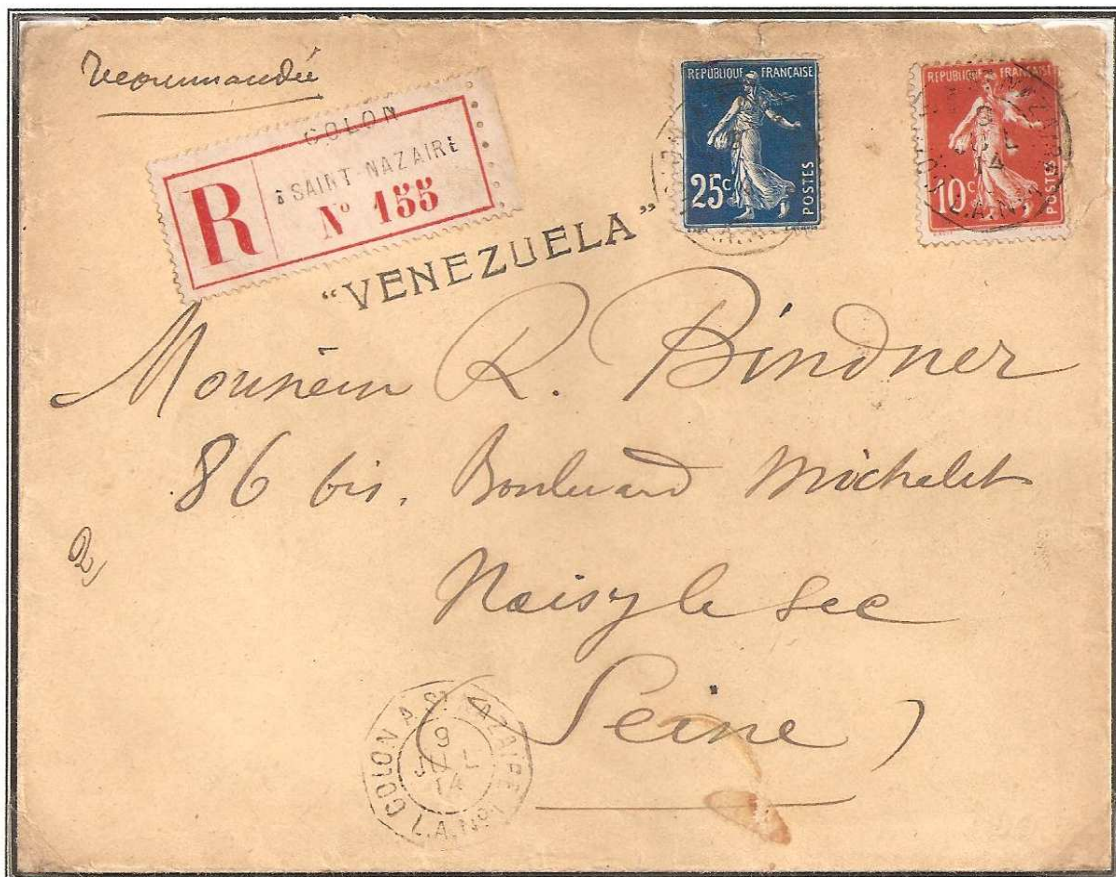 recommandée
COLON
A SAINT-NAZAIRE
R Nº 155
"VENEZUELA"
REPUBLIQUE FRANÇAISE
25c
POSTES
REPUBLIQUE FRANÇAISE
10c
POSTES
Monsieur R. Bindner
86 bis. Boulevard Michelet
Noisy le Sec
Seine
COLON A St NAZAIRE
9
JUIL
14
L.A. Nº1